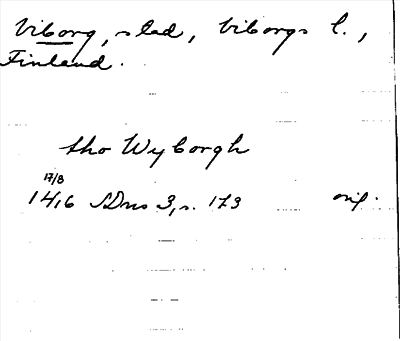 Viborg, stad, Viborgs l.,
Finland.
tho Wyborgh
17/8
1416 SDns 3, s. 173 orig.